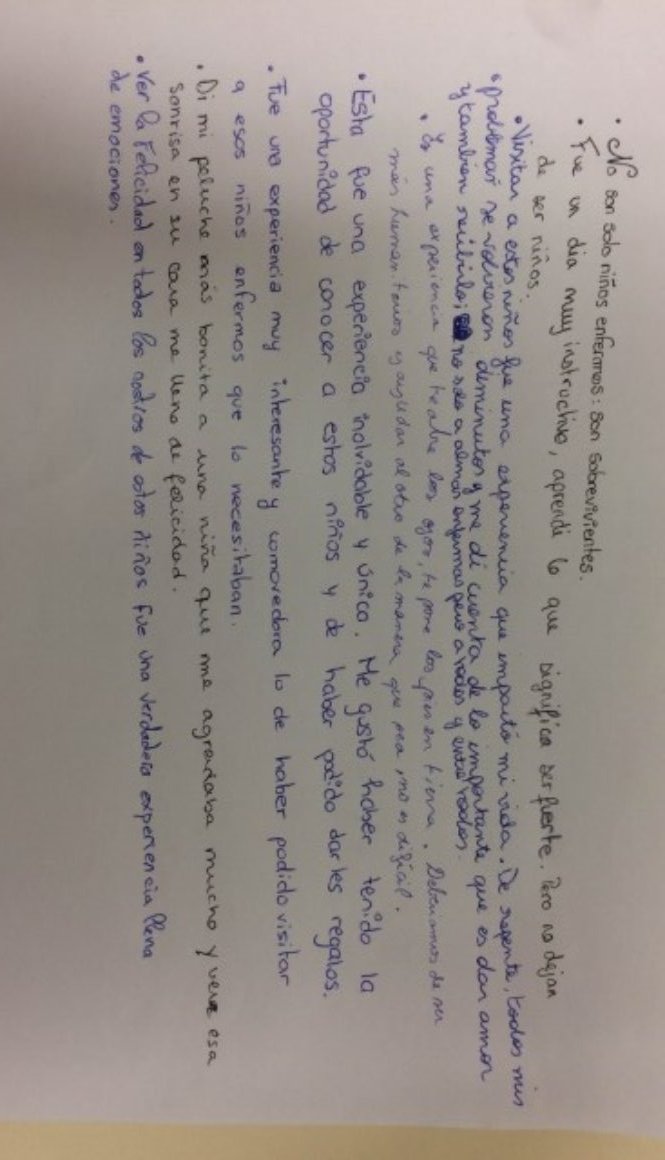 • No son solo niños enfermos: son sobrevivientes.
• Fue un dia muy instructivo, aprendí lo que significa ser fuerte. Pero no dejan
de ser niños.
• Visitar a estos niños fue una experiencia que impactó mi vida. De repente, todos mis
problemas se volvieron diminutos y me di cuenta de lo importante que es dar amor
y tambien recibirlo; no solo a almas enfermas pero a todos y entre todos.
• Es una experiencia que te abre los ojos, te pone los pies en tierra. Debemos de ser
más humanitarios y ayudar al otro de la manera que sea, no es difícil.
• Esta fue una experiencia inolvidable y única. Me gustó haber tenido la
oportunidad de conocer a estos niños y de haber podido darles regalos.
• Fue una experiencia muy interesante y comovedora lo de haber podido visitar
a esos niños enfermos que lo necesitaban.
• Di mi peluche más bonita a una niña que me agradaba mucho y ver esa
sonrisa en su cara me lleno de felicidad.
• Ver la Felicidad en todos los rostros de estos niños fue una verdadera experiencia llena
de emociones.